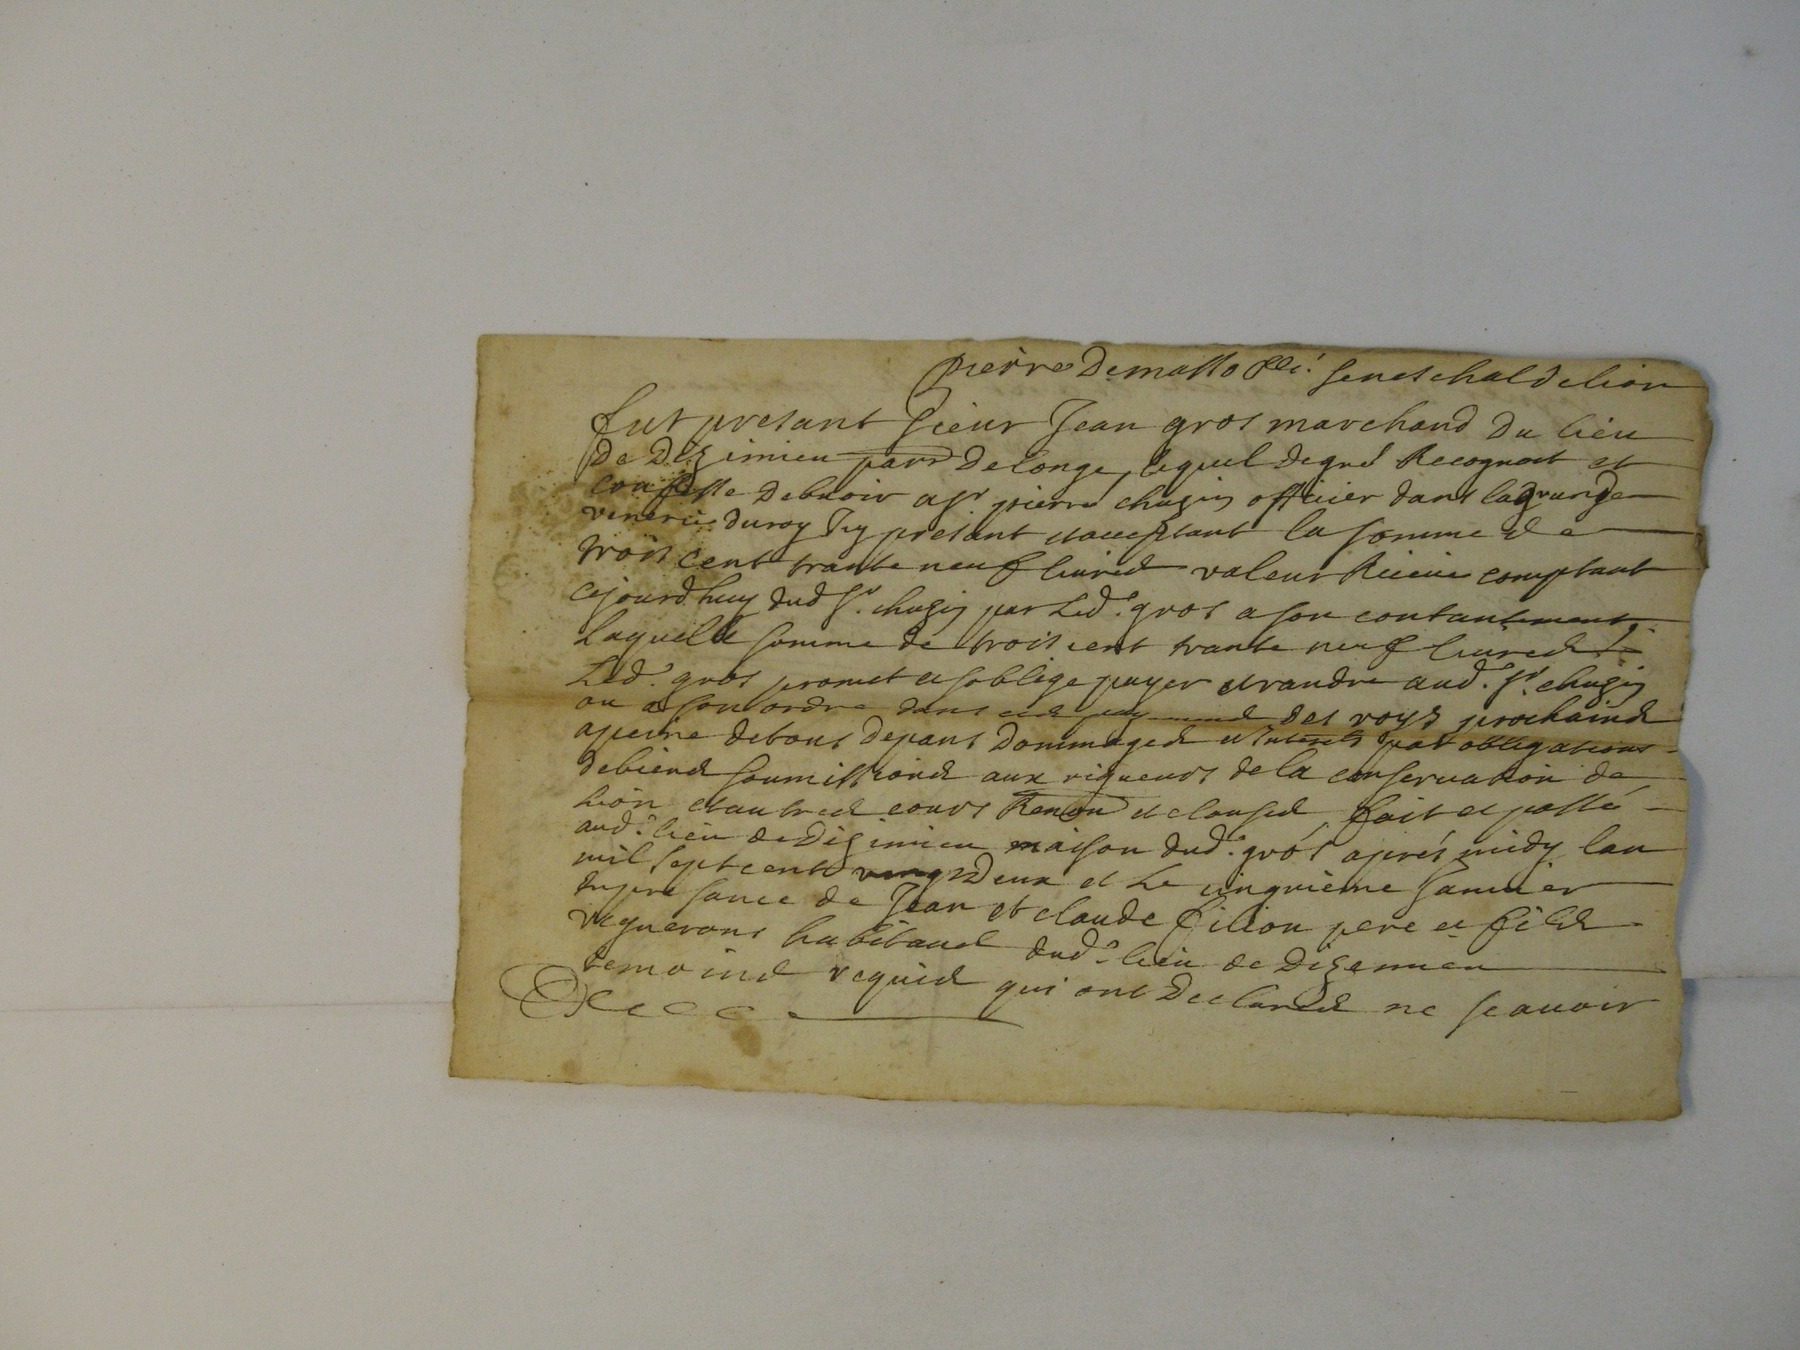 pierre Demasso seneschal de lion
fut presant sieur Jean gros marchand du lieu
De Dizimieu parr De longe, lequel de gré Recognoit et
confesse debuoir a sr pierre chuzin officier dans la grande
venerie du roy Icy presant et acceptant la somme de
trois cent trante neuf liures valeur Receue comptant
cejourdhuy dud sr. chuzin par Led. gros a son contantement
Laquelle somme de trois cent trante neuf liures
Led. gros promet et soblige payer et randre aud. sr. chuzin
ou a son ordre dans des roys prochains
a peine de tous depans Dommages et Interets par obligations
de biens soumissions aux rigueurs de la conseruation de
Lion et autres cours Renon et clauses, fait et passé
aud. lieu de Dizimieu maison dud. gros aprés midy lan
mil sept cent vingt Deux et Le cinquieme Januier
en presance de Jean et claude filion pere et fils
vignerons habitans dud. lieu de Dizemieu
temoins requis qui ont Declarés ne scauoir